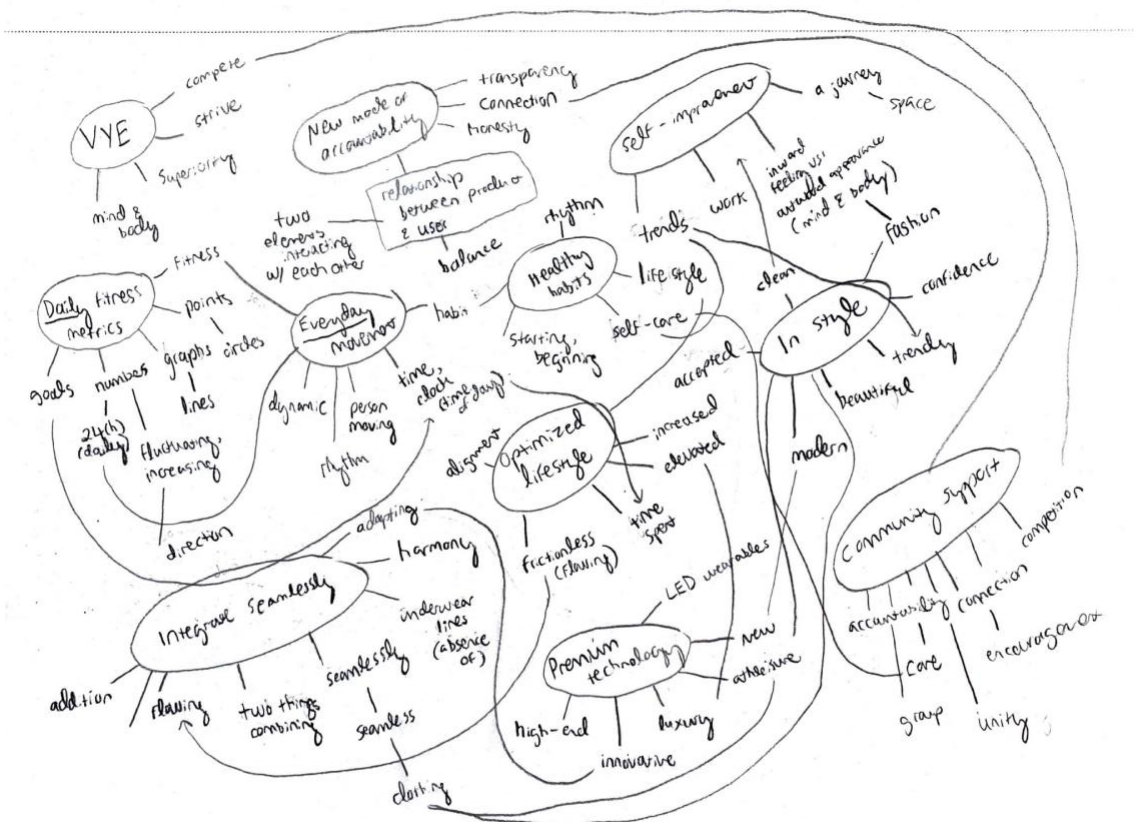 compete
VYE
strive
superiority
mind &
body
New mode of
accountability
transparency
connection
honesty
relationship
between product
& user
two
elements
interacting
w/ each other
balance
self-improvement
a journey
space
work
inward
feeling vs.
outward appearance
(mind & body)
trends
Daily fitness
metrics
fitness
points
circles
graphs
lines
numbers
24(h)
(daily)
fluctuating,
increasing
direction
goals
Everyday
movement
habit
time,
clock
(time
of day)
person
moving
rhythm
dynamic
Healthy
habits
rhythm
lifestyle
self-care
starting,
beginning
In style
clean
fashion
confidence
trendy
beautiful
modern
accepted
Optimized
lifestyle
alignment
increased
elevated
time
spent
frictionless
(flowing)
Integrate seamlessly
adapting
harmony
underwear
lines
(absence
of)
seamlessly
seamless
clothing
two things
combining
flowing
addition
Premium
technology
LED wearables
new
athleisure
luxury
innovative
high-end
community support
competition
connection
encouragement
unity
accountability
care
group